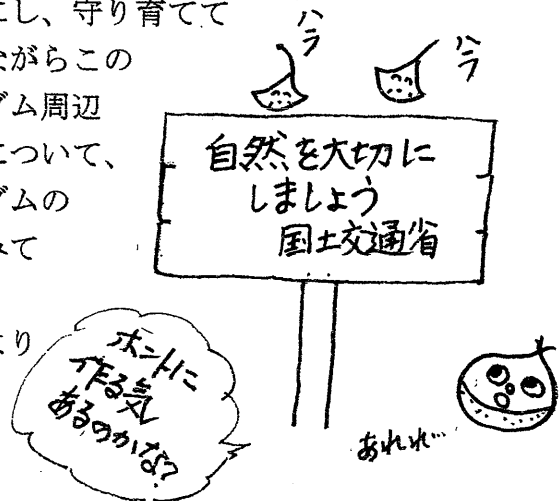 にし、守り育てて
ながらこの
ダム周辺
について、
ダムの
みて
より
ハラ
ハラ
自然を大切に
しましょう
国土交通省
ホントに
作る気
あるのかな?
あれれ…